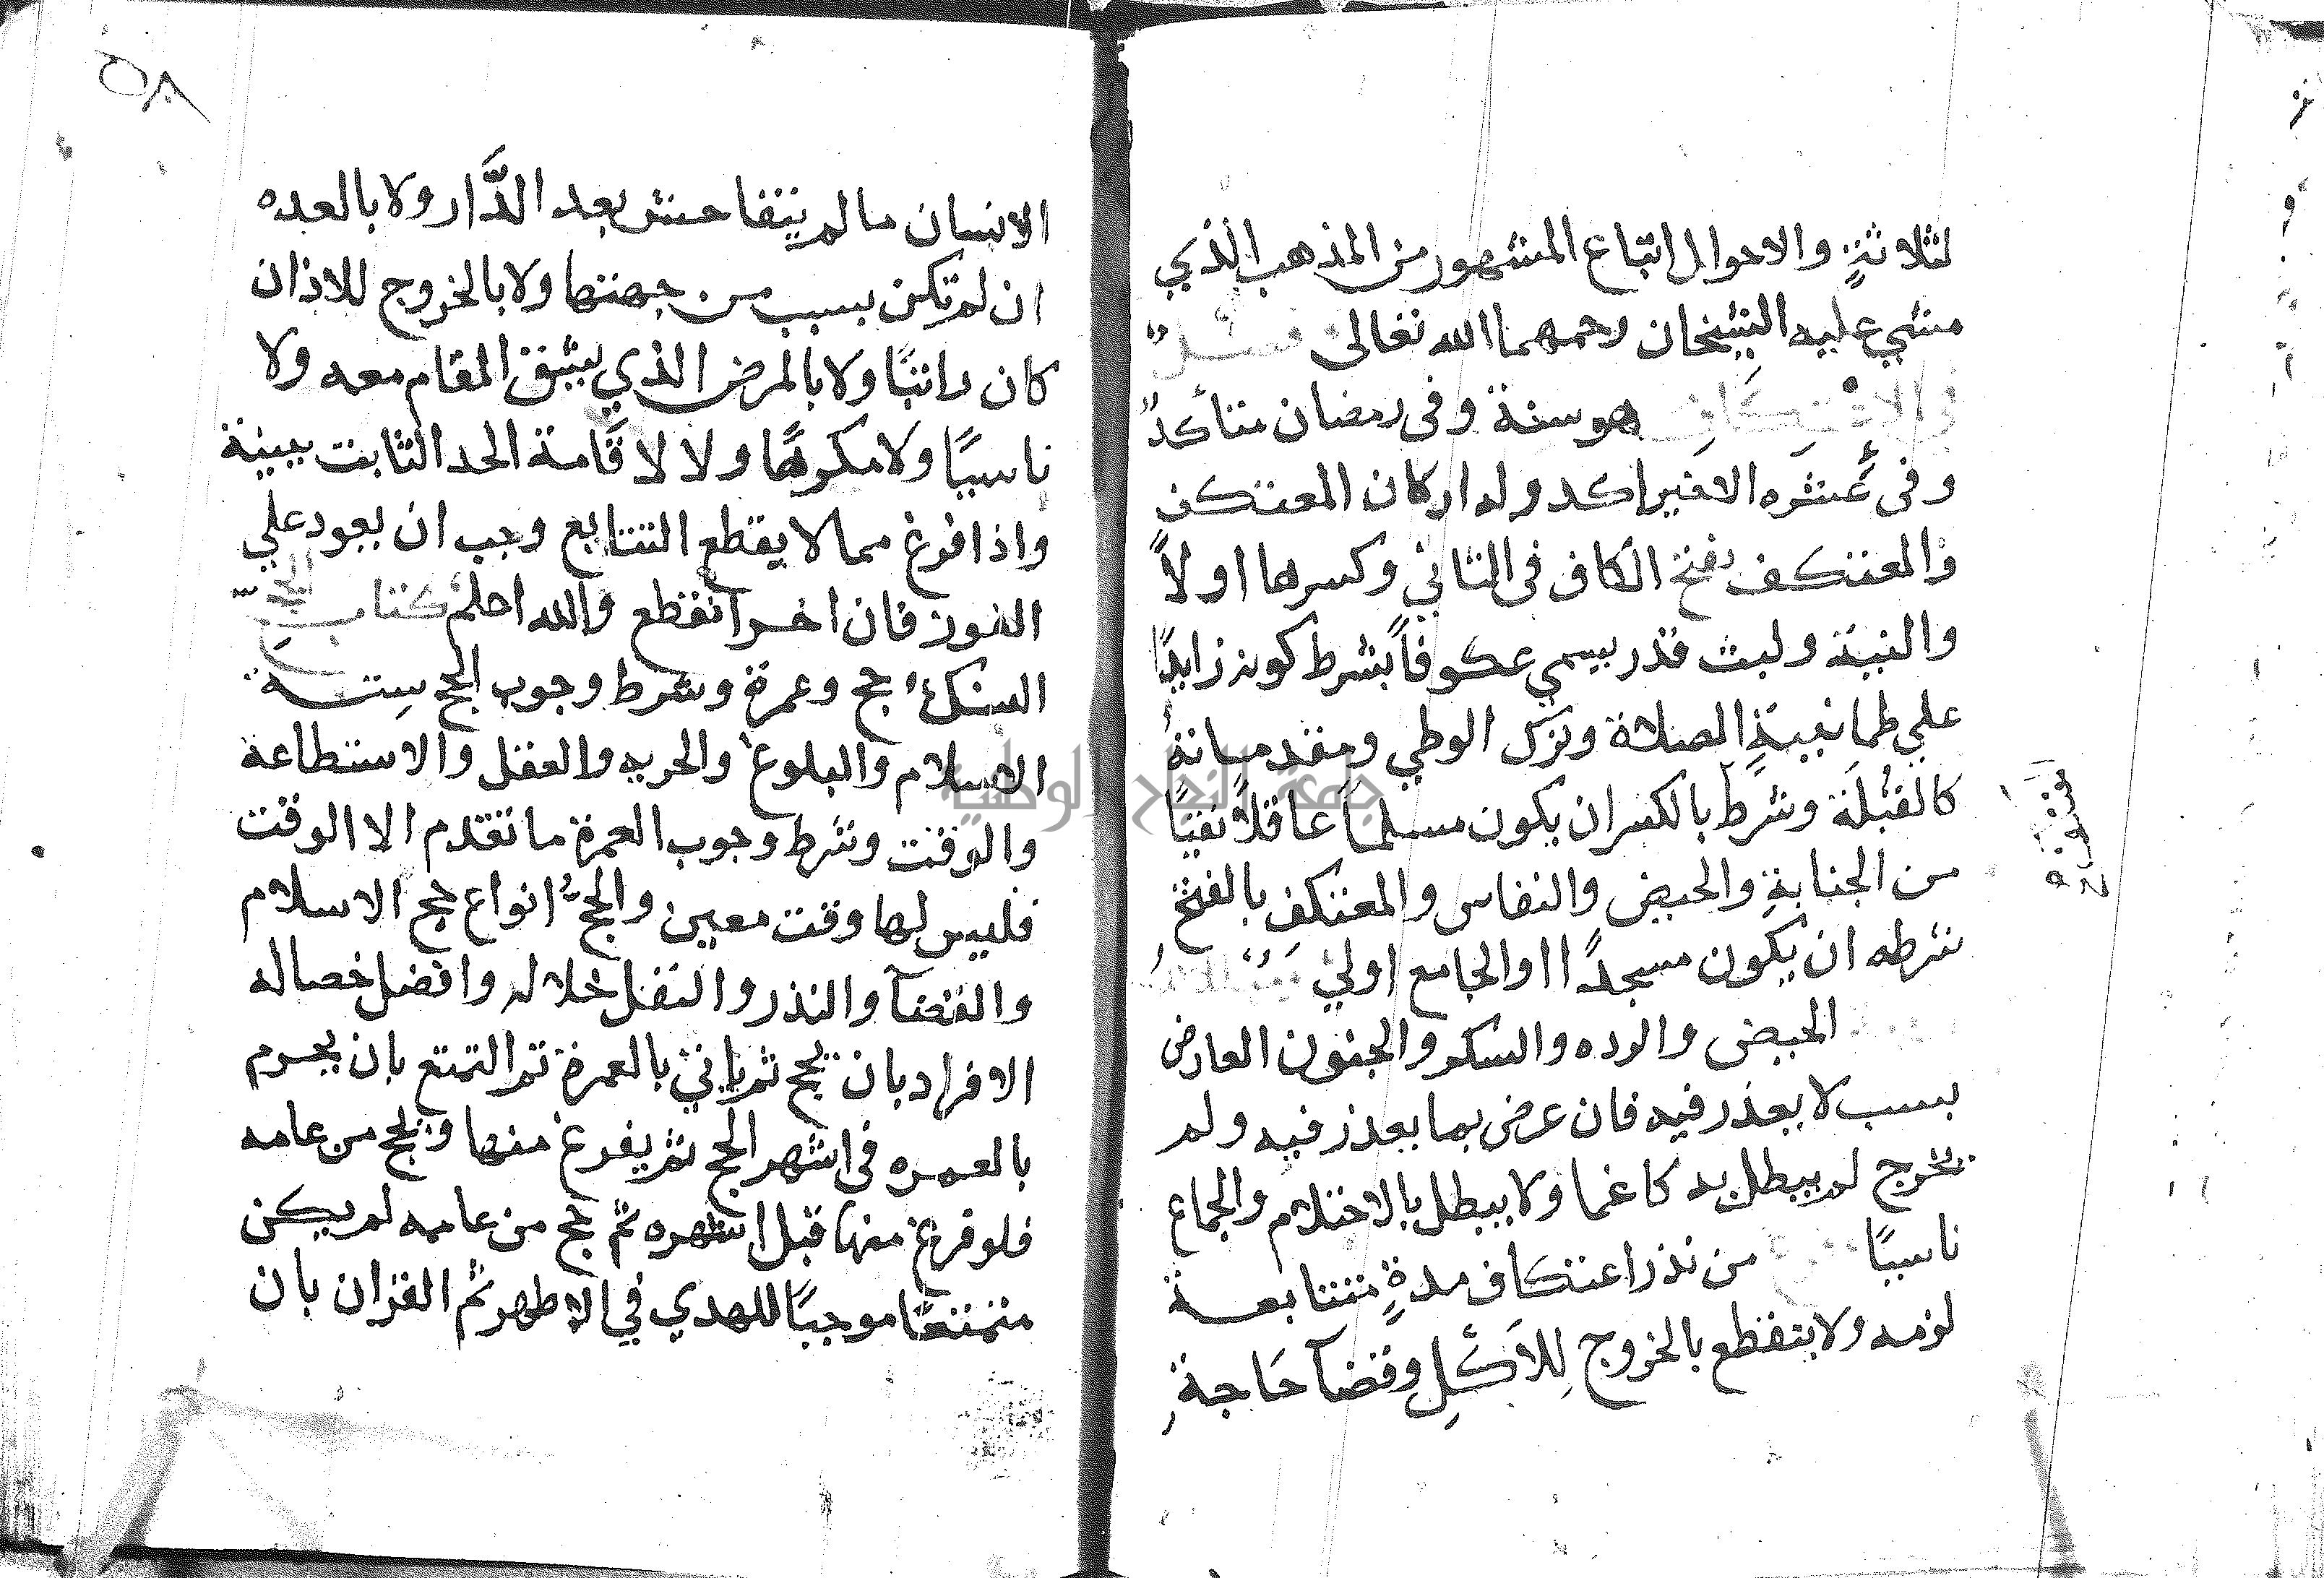 لثلاثةٍ والاحوال اتباع المشهور من المذهب الذي
مشي عليه الشيخان رحمهما الله تعالى فصل
في الاعتكاف هو سنة وفى رمضان متأكدٌ
وفى عَشره الاخير اكد وله اركان المعتكف
والمعتكف بفتح الكاف فى الثاني وكسرها اولاً
والنية ولبث قدر يسمي عكوفاً بشرط كونه زايدًا
علي طمانينةِ الصلاة وترك الوطي ومقدماته
كالقُبلَة وشرط بالكسر ان يكون مسلماً عاقلاً نقيًا
من الجنابةِ والحيض والنفاس والمعتكف بالفتح
شرطه ان يكون مسجدًا اوالجامع اولي
الحيض والرده والسكر والجنون العارض
بسبب لا يعذر فيه فان عرض بما يعذر فيه ولم
يخرج لم يبطل به كاغما ولا يبطل بالاحتلام والجماع
ناسيًا من نذر اعتكاف مدةٍ متتابعة
لزمه ولا يتقطع بالخروج لِلاَكلِ وقضآ حَاجةِ
٥٨
الانسان ما لم يتفاحش بعد الدَّار ولا بالعده
ان لم تكن بسبب من جهتها ولا بالخروج للاذان
كان راتبًا ولا بالمرض الذي يشق المقام معه ولا
ناسيًا ولا مكرهًا ولا لاقامة الحد الثابت ببينة
واذا فرغ مما لا يقطع التتابع وجب ان يعود علي
الفور فان اخر انقطع والله اعلم كتاب الحج
النسك حج وعمرة وشرط وجوب الحج سِتة
الاسلام والبلوغ والحريه والعقل والاستطاعة
والوقت وشرط وجوب العمرة ما تقدم الا الوقت
فليس لها وقت معين والحجُّ انواع حج الاسلام
والقضآ والنذر والنفل خلاله وافضل خصاله
الافراد بان يحج ثم ياتي بالعمرة ثم التمتع بان يحرم
بالعمره فى اشهر الحج ثم يفرغ منها ويحج من عامه
فلو فرغ منها قبل اشهره ثم حج من عامه لم يكن
متمتعًا موجبًا للهدي في الاظهر ثم القران بان
جامعة النجاح الوطنية